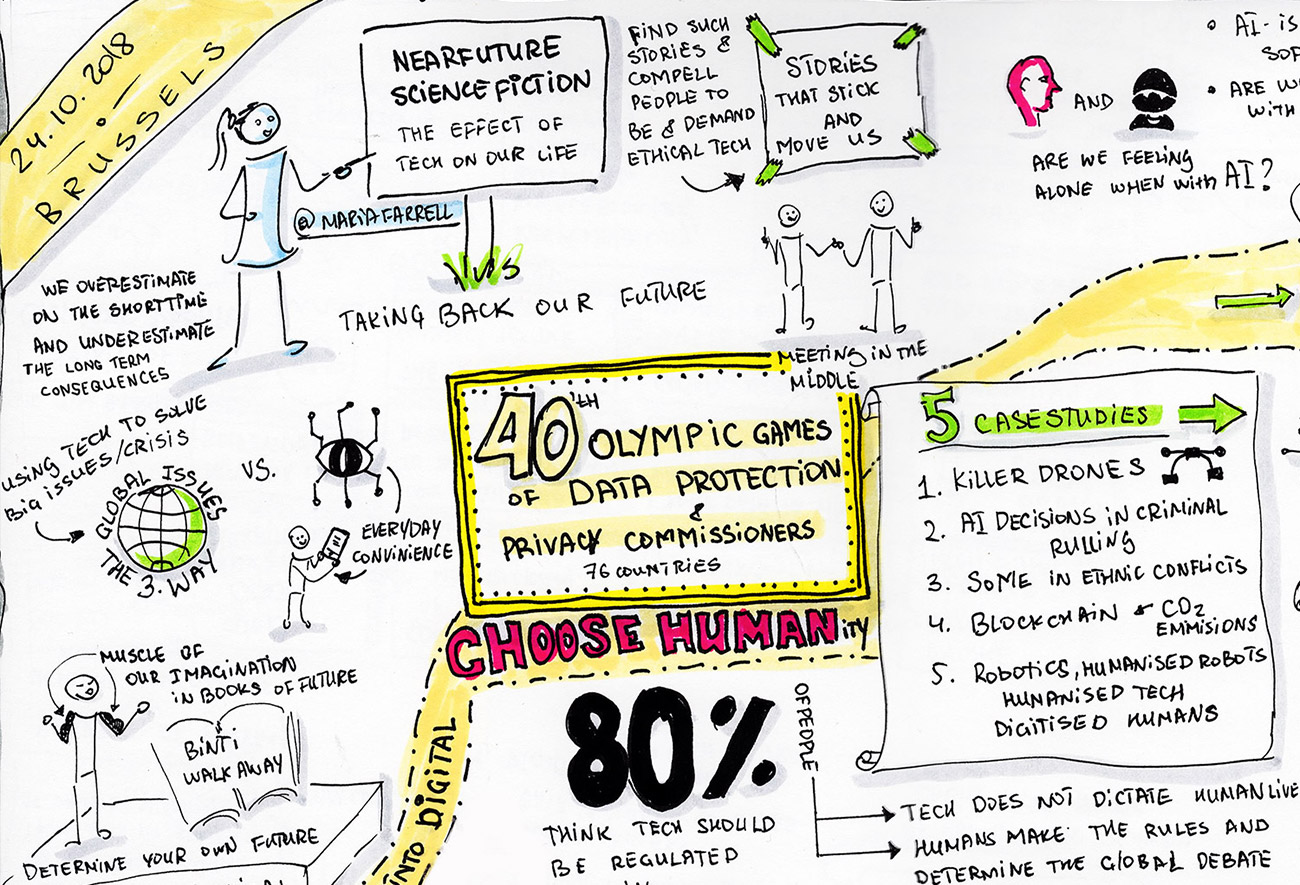 24.10.2018
BRUSSELS
NEARFUTURE
SCIENCE FICTION
THE EFFECT OF
TECH ON OUR LIFE
@MARIAFARRELL
FIND SUCH
STORIES &
COMPELL
PEOPLE TO
BE & DEMAND
ETHICAL TECH
STORIES
THAT STICK
AND
MOVE US
AND
ARE WE FEELING
ALONE WHEN WITH AI?
AI-IS
ARE
WITH
WE OVERESTIMATE
ON THE SHORTTIME
AND UNDERESTIMATE
THE LONG TERM
CONSEQUENCES
TAKING BACK OUR FUTURE
MEETING IN THE
MIDDLE
USING TECH TO SOLVE
BIG ISSUES/CRISIS
GLOBAL ISSUES
THE 3. WAY
VS.
EVERYDAY
CONVINIENCE
40'TH
OLYMPIC GAMES
OF DATA PROTECTION
&
PRIVACY COMMISSIONERS
76 COUNTRIES
CHOOSE HUMANITY
5 CASESTUDIES
1. KILLER DRONES
2. AI DECISIONS IN CRIMINAL
RULLING
3. SOME IN ETHNIC CONFLICTS
4. BLOCKCHAIN & CO2
EMMISIONS
5. ROBOTICS, HUMANISED ROBOTS
HUMANISED TECH
DIGITISED HUMANS
MUSCLE OF
OUR IMAGINATION
IN BOOKS OF FUTURE
BINTI
WALK AWAY
DETERMINE YOUR OWN FUTURE
INTO DIGITAL
80%
OF PEOPLE
THINK TECH SHOULD
BE REGULATED
TECH DOES NOT DICTATE HUMAN LIVE
HUMANS MAKE THE RULES AND
DETERMINE THE GLOBAL DEBATE